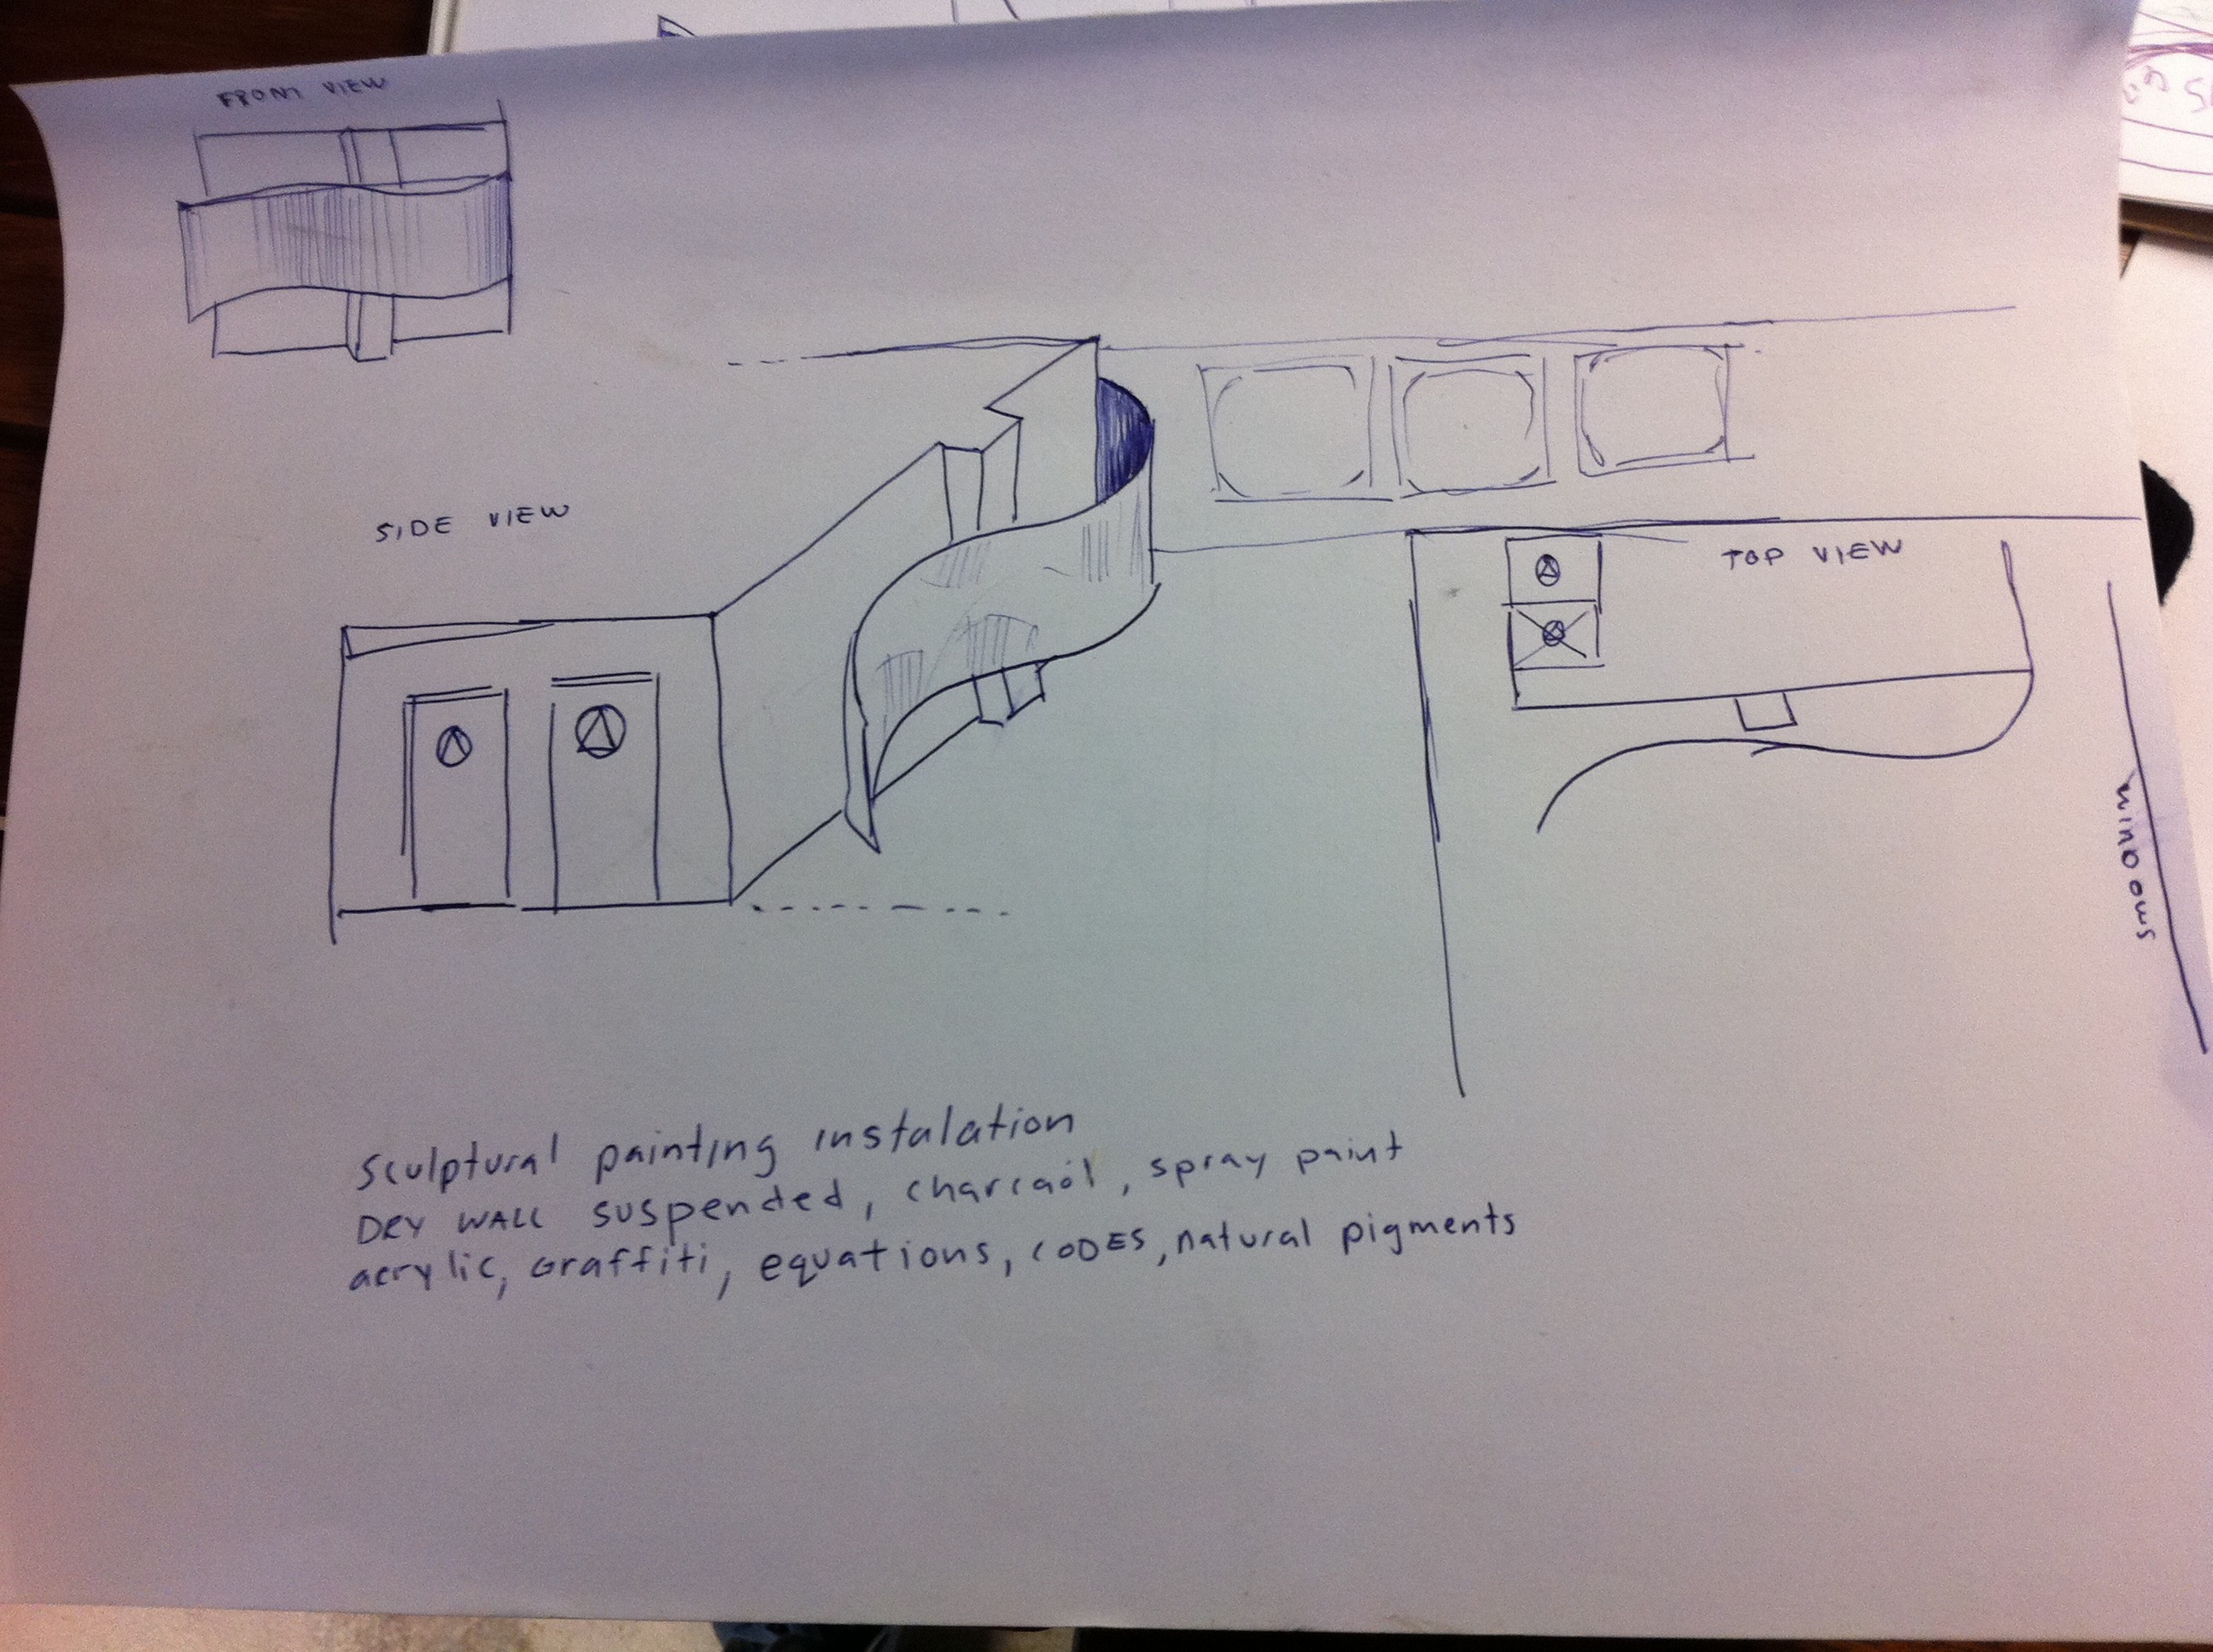 FRONT VIEW
SIDE VIEW
TOP VIEW
WINDOWS
Sculptural painting instalation
DRY WALL suspended, charcaol, spray paint
acrylic, Graffiti, equations, CODES, natural pigments